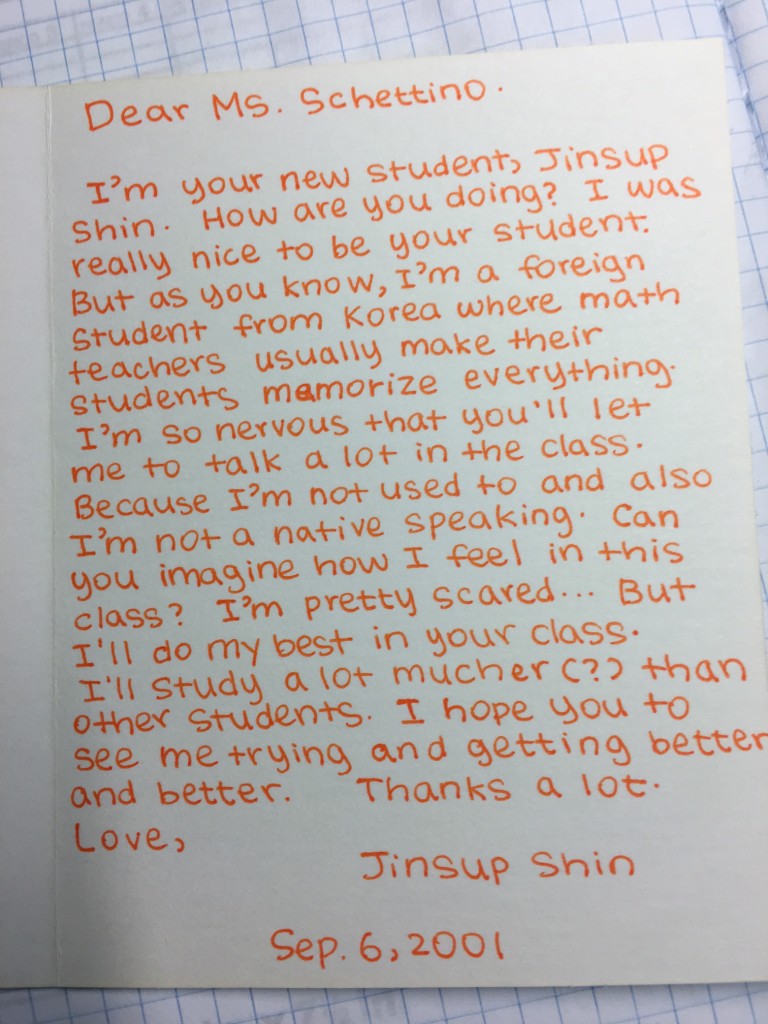 Dear Ms. Schettino.
I'm your new student, Jinsup
Shin. How are you doing? I was
really nice to be your student.
But as you know, I'm a foreign
student from Korea where math
teachers usually make their
students mamorize everything.
I'm so nervous that you'll let
me to talk a lot in the class.
Because I'm not used to and also
I'm not a native speaking. Can
you imagine how I feel in this
class? I'm pretty scared... But
I'll do my best in your class.
I'll study a lot mucher(?) than
other students. I hope you to
see me trying and getting better
and better. Thanks a lot.
Love,
Jinsup Shin
Sep. 6, 2001